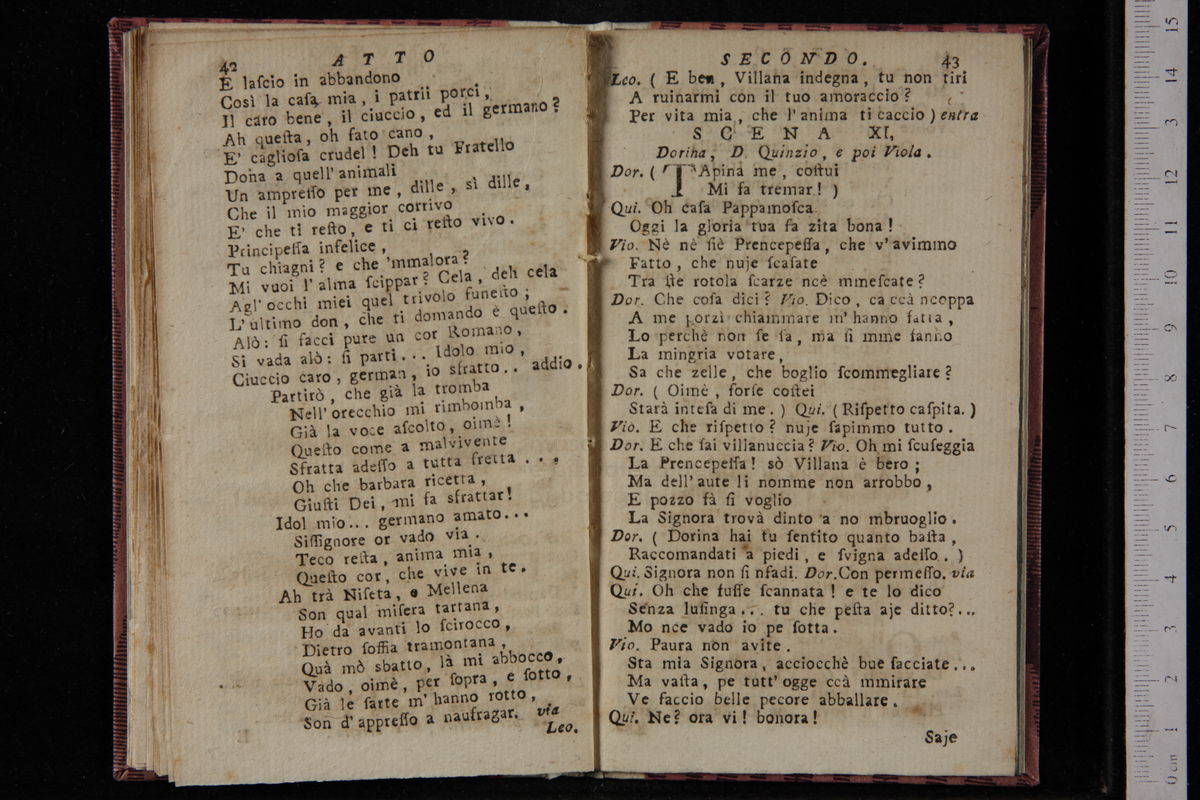 42 ATTO
E laſcio in abbandono
Così la caſa mia, i patrii porci,
Il caro bene, il ciuccio, ed il germano?
Ah queſta, oh fato cano,
E' caglioſa crudel! Deh tu Fratello
Dona a quell' animali
Un ampreſſo per me, dille, sì dille,
Che il mio maggior corrivo
E' che ti reſto, e ti ci reſto vivo.
Principeſſa infelice,
Tu chiagni? e che 'mmalora?
Mi vuoi l' alma ſcippar? Cela, deh cela
Agl' occhi miei quel trivolo funeſto;
L' ultimo don, che ti domando è queſto.
Alò: ſi facci pure un cor Romano,
Si vada alò: ſi parti... Idolo mio,
Ciuccio caro, german, io sfratto.. addio.
Partirò, che già la tromba
Nell' orecchio mi rimbomba,
Già la voce aſcolto, oimè!
Queſto come a malvivente
Sfratta adeſſo a tutta fretta...
Oh che barbara ricetta,
Giuſti Dei, mi fa sfrattar!
Idol mio... germano amato...
Siſſignore or vado via.
Teco reſta, anima mia,
Queſto cor, che vive in te.
Ah trà Niſeta, e Mellena
Son qual miſera tartana,
Ho da avanti lo ſcirocco,
Dietro ſoffia tramontana,
Quà mò sbatto, là mi abbocco,
Vado, oimè, per ſopra, e ſotto,
Già le ſarte m' hanno rotto,
Son d' appreſſo a naufragar. via
Leo.
SECONDO. 43
Leo. ( E ben, Villana indegna, tu non tiri
A ruinarmi con il tuo amoraccio?
Per vita mia, che l' anima ti caccio ) entra
SCENA XI,
Dorina, D. Quinzio, e poi Viola.
Dor. ( TApina me, coſtui
Mi fa tremar! )
Qui. Oh caſa Pappamoſca
Oggi la gloria tua fa zita bona!
Vio. Nè nè ſiè Prencepeſſa, che v' avimmo
Fatto, che nuje ſcaſate
Tra ſte rotola ſcarze ncè mmeſcate?
Dor. Che coſa dici? Vio. Dico, ca ccà ncoppa
A me porzì chiammare m' hanno fatta,
Lo perchè non ſe ſa, ma ſi mme fanno
La mingria votare,
Sa che zelle, che boglio ſcommegliare?
Dor. ( Oimè, forſe coſtei
Starà inteſa di me. ) Qui. ( Riſpetto caſpita. )
Vio. E che riſpetto? nuje ſapimmo tutto.
Dor. E che ſai villanuccia? Vio. Oh mi ſcuſeggia
La Prencepeſſa! sò Villana è bero;
Ma dell' aute li nomme non arrobbo,
E pozzo fà ſi voglio
La Signora trovà dinto a no mbruoglio.
Dor. ( Dorina hai tu ſentito quanto baſta,
Raccomandati a piedi, e ſvigna adeſſo. )
Qui. Signora non ſi nfadi. Dor. Con permeſſo. via
Qui. Oh che fuſſe ſcannata! e te lo dico
Senza luſinga... tu che peſta aje ditto?...
Mo nce vado io pe ſotta.
Vio. Paura non avite.
Sta mia Signora, acciocchè bue facciate...
Ma vaſta, pe tutt' ogge ccà mmirare
Ve faccio belle pecore abballare.
Qui. Ne? ora vi! bonora!
Saje
15
14
3
12
11
10
9
8
7
6
5
4
3
2
1
0 cm